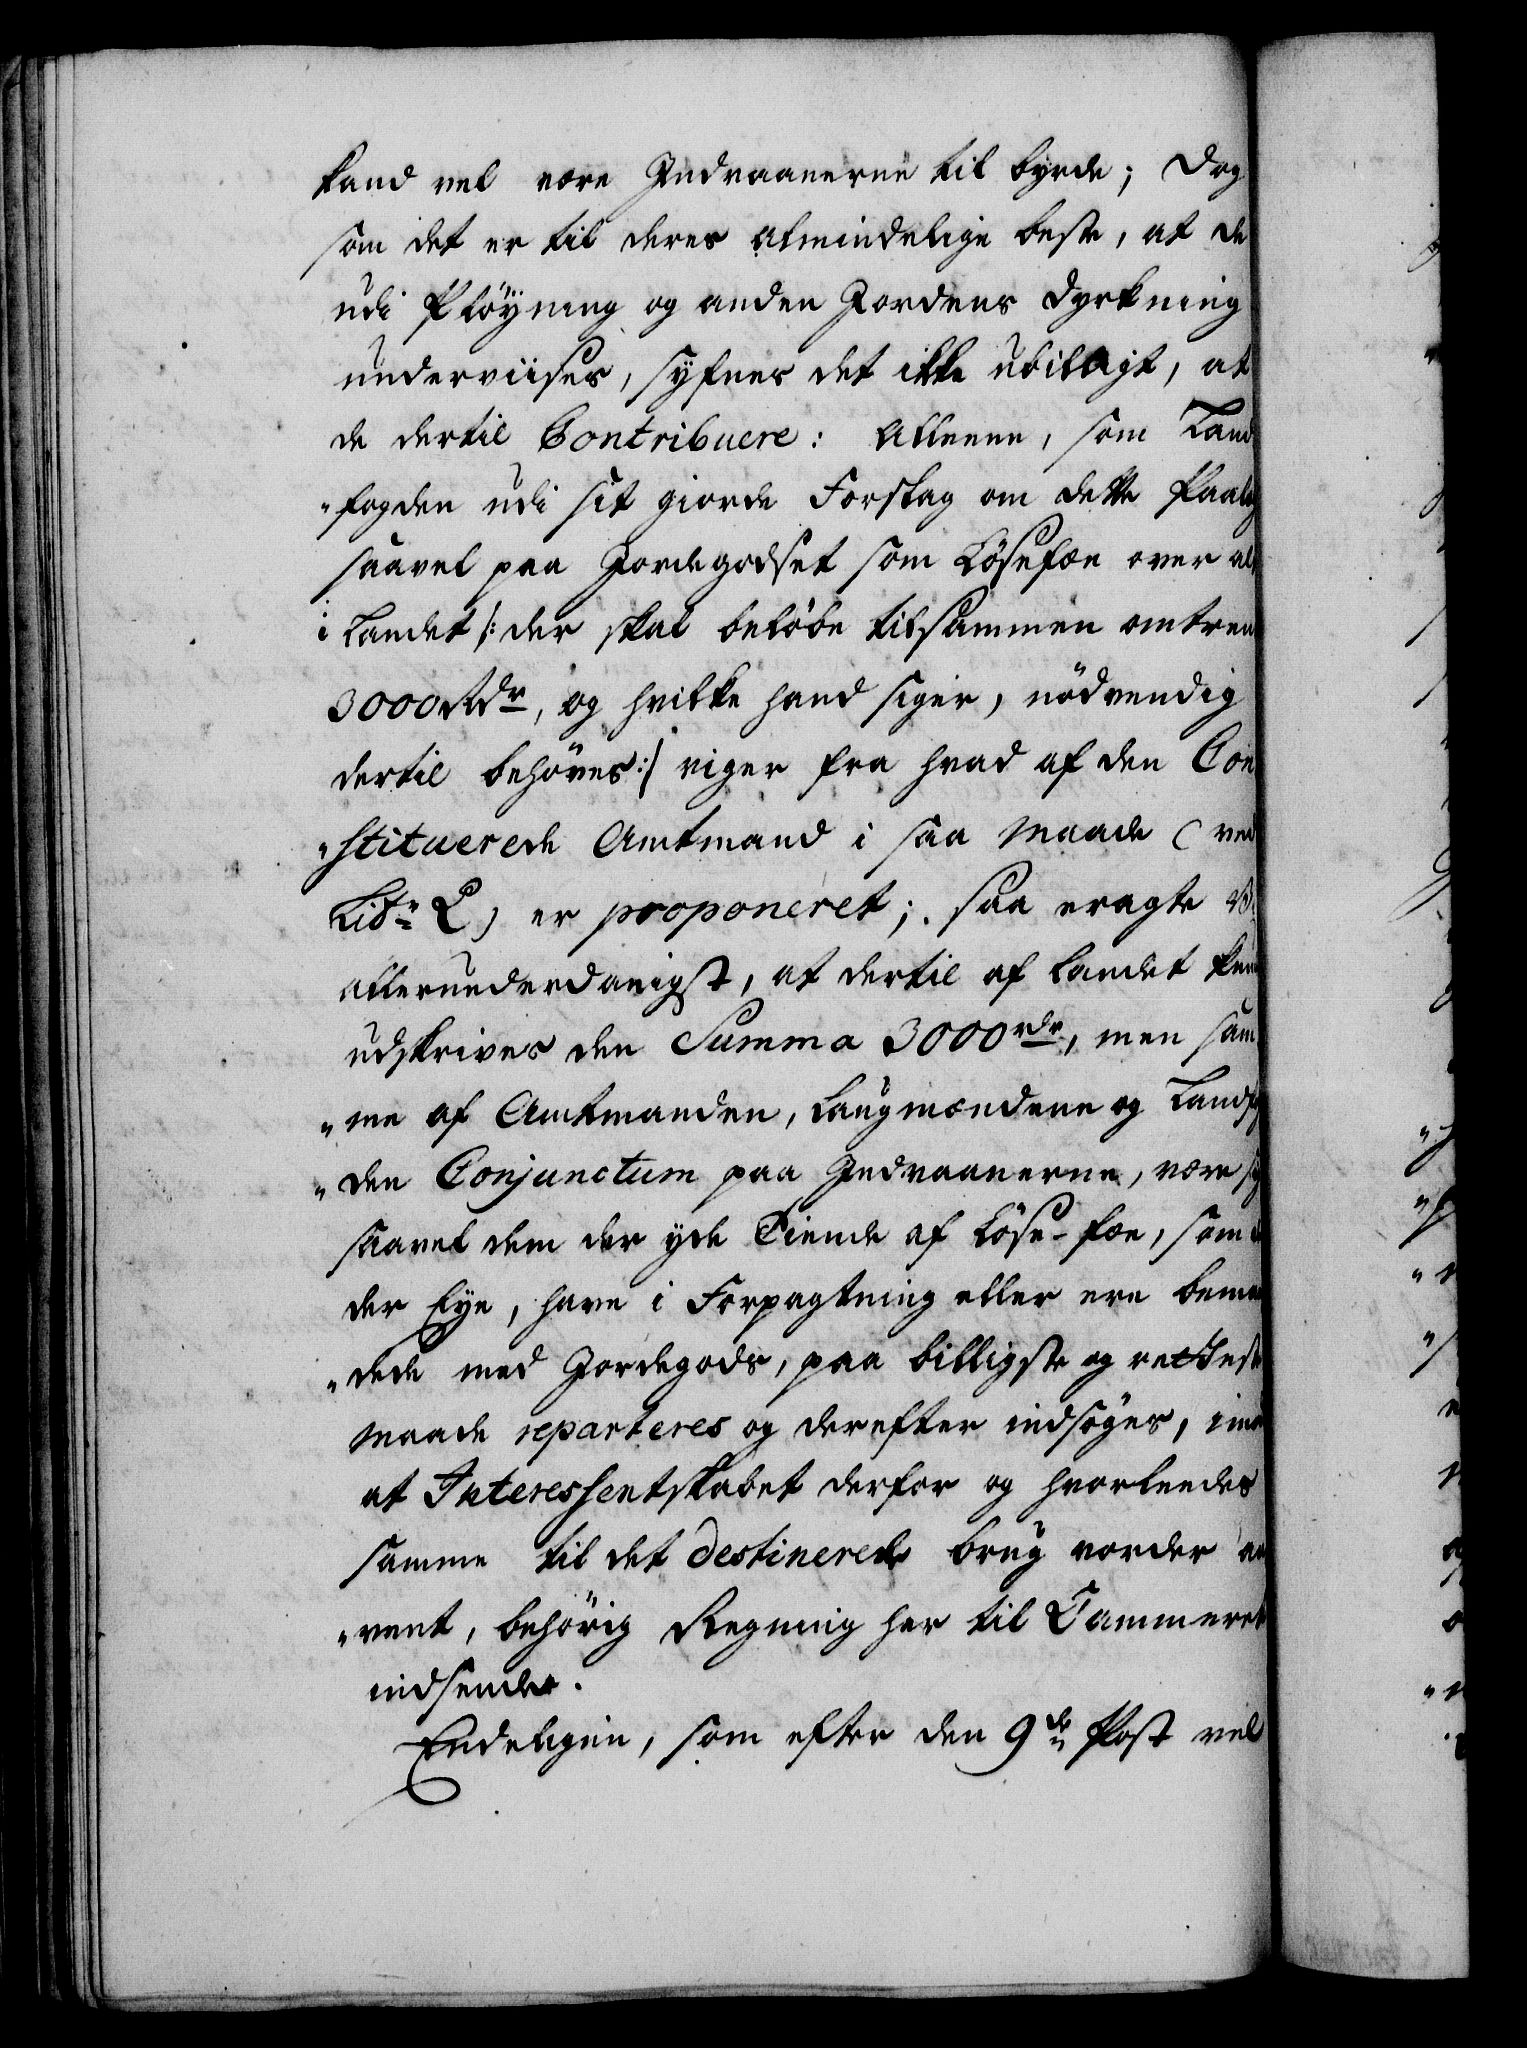 kand vel være Indvaanerne til byrde; Dog
som det er til deres almindelige beste, at de
udi Pløyning og anden Jordens Dyrkning
underviises, synes det ikke ubilligt, at
de dertil Contribuere: Alleene, som Land
"fogden udi sit giorde Forslag om dette Paalæg
saavel paa Jordegodset som Løsefæe over alt
i Landet /: der skal beløbe tilsammen omtrent
3000 Rdr, og hvilke hand siger, nødvendig
dertil behøves :/ viger fra hvad af den Con
"stituerede Amtmand i saa Maade (ved
Litr: L) er proponeret; saa eragte Vi
allerunderdanigst, at dertil af Landet kun
udskrives den Summa 3000 rdr, men sam
"me af Amtmanden, Laugmændene og Landfog
"den Conjunctum paa Indvaanerne, være sig
saavel dem der yde Tiende af Løse-fæe, som
der Eye, have i Forpagtning eller ere benaa
"dede med Jordegods, paa billigste og retteste
Maade reparteres og derefter indsøges, imod
at Interessentskabet derfor og hvorleedes
samme til det destinerede brug vorder an
"vent, behørig Regning her til Cammeret
indsender.
Endeligen, som efter den 9de Post vel